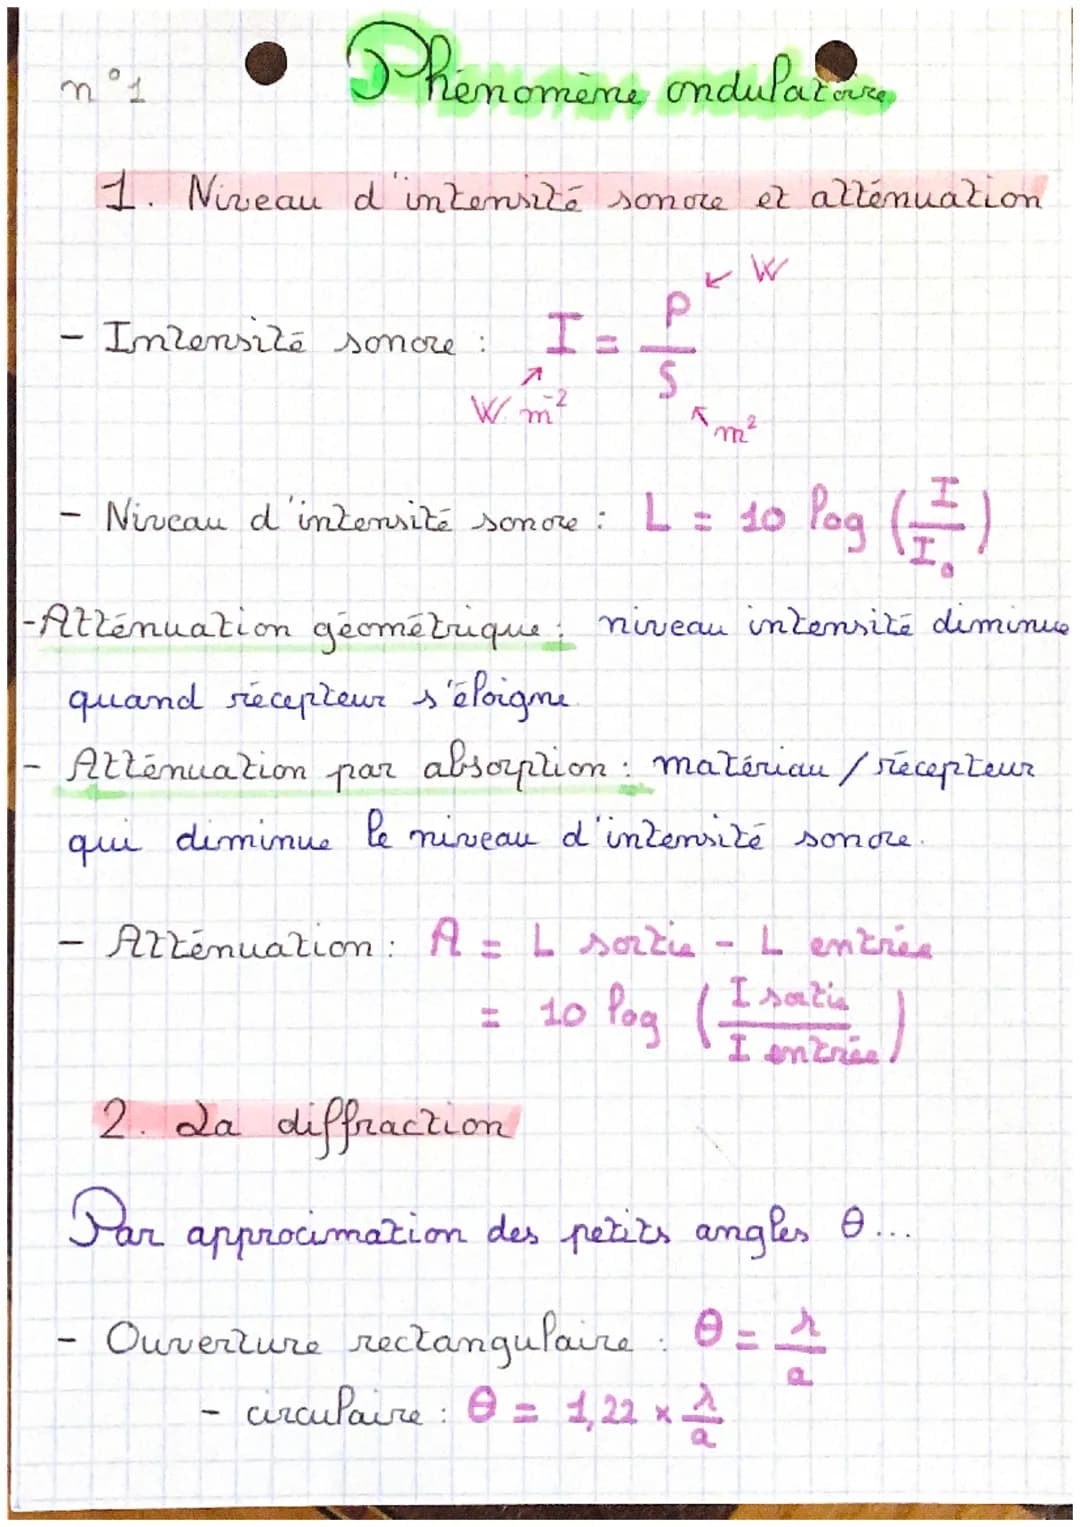 n°1
Phénomène ondulatoire
1. Niveau d'intensité sonore et atténuation
- Intensité sonore : I = P / S
W
W m⁻²
m²
- Niveau d'intensité sonore : L = 10 log (I / I₀)
- Atténuation géométrique : niveau intensité diminue
quand récepteur s'éloigne
- Atténuation par absorption : matériau / récepteur
qui diminue le niveau d'intensité sonore.
- Atténuation : A = L sortie - L entrée
= 10 log (I sortie / I entrée)
2. La diffraction
Par approcimation des petits angles θ...
- Ouverture rectangulaire : θ = λ / a
- circulaire : θ = 1,22 × λ / a